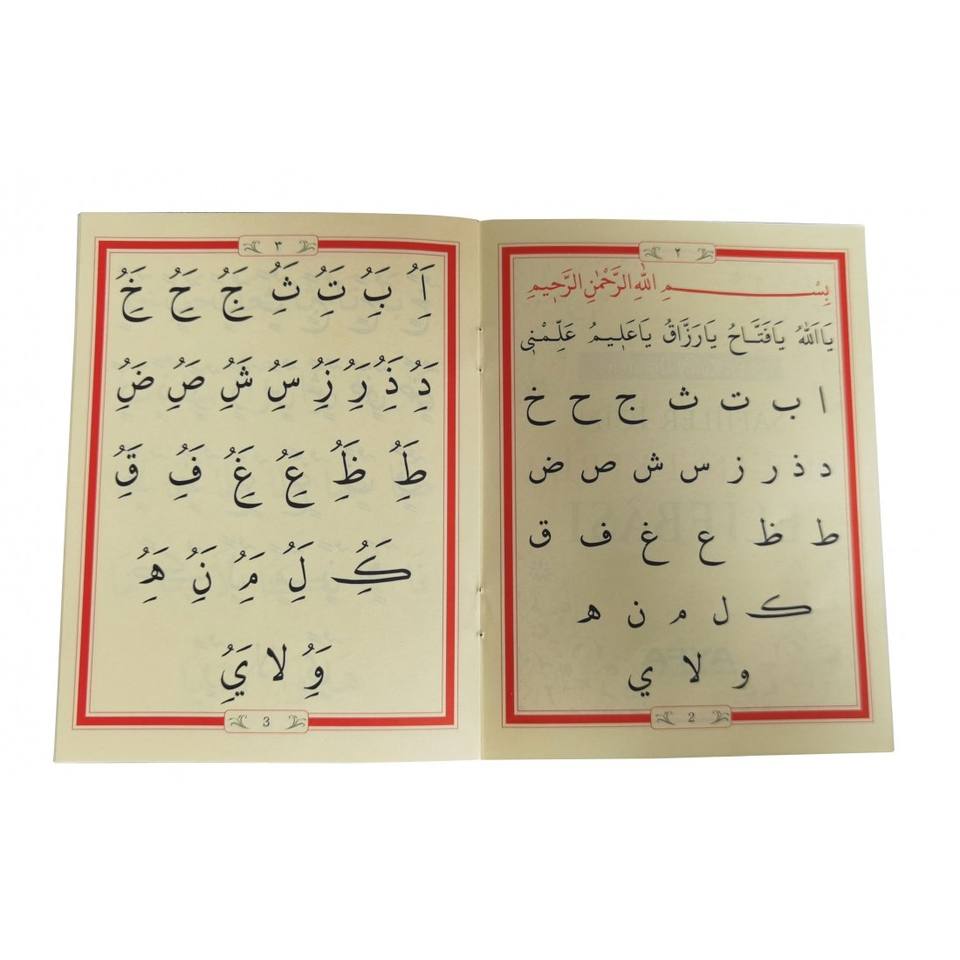 ٢
بِسْمِ اللّٰهِ الرَّحْمٰنِ الرَّحٖيمِ
يَا اَللّٰهُ يَا فَتَّاحُ يَا رَزَّاقُ يَا عَلٖيمُ عَلِّمْنٖى
ا ب ت ث ج ح خ
د ذ ر ز س ش ص ض
ط ظ ع غ ف ق
ك ل م ن ه
و لا ي
2
٣
اَُِ بَُِ تَُِ ثَُِ جَُِ حَُِ خَُِ
دَُِ ذَُِ رَُِ زَُِ سَُِ شَُِ صَُِ ضَُِ
طَُِ ظَُِ عَُِ غَُِ فَُِ قَُِ
كَُِ لَُِ مَُِ نَُِ هَُِ
وَُِ لا يَُِ
3